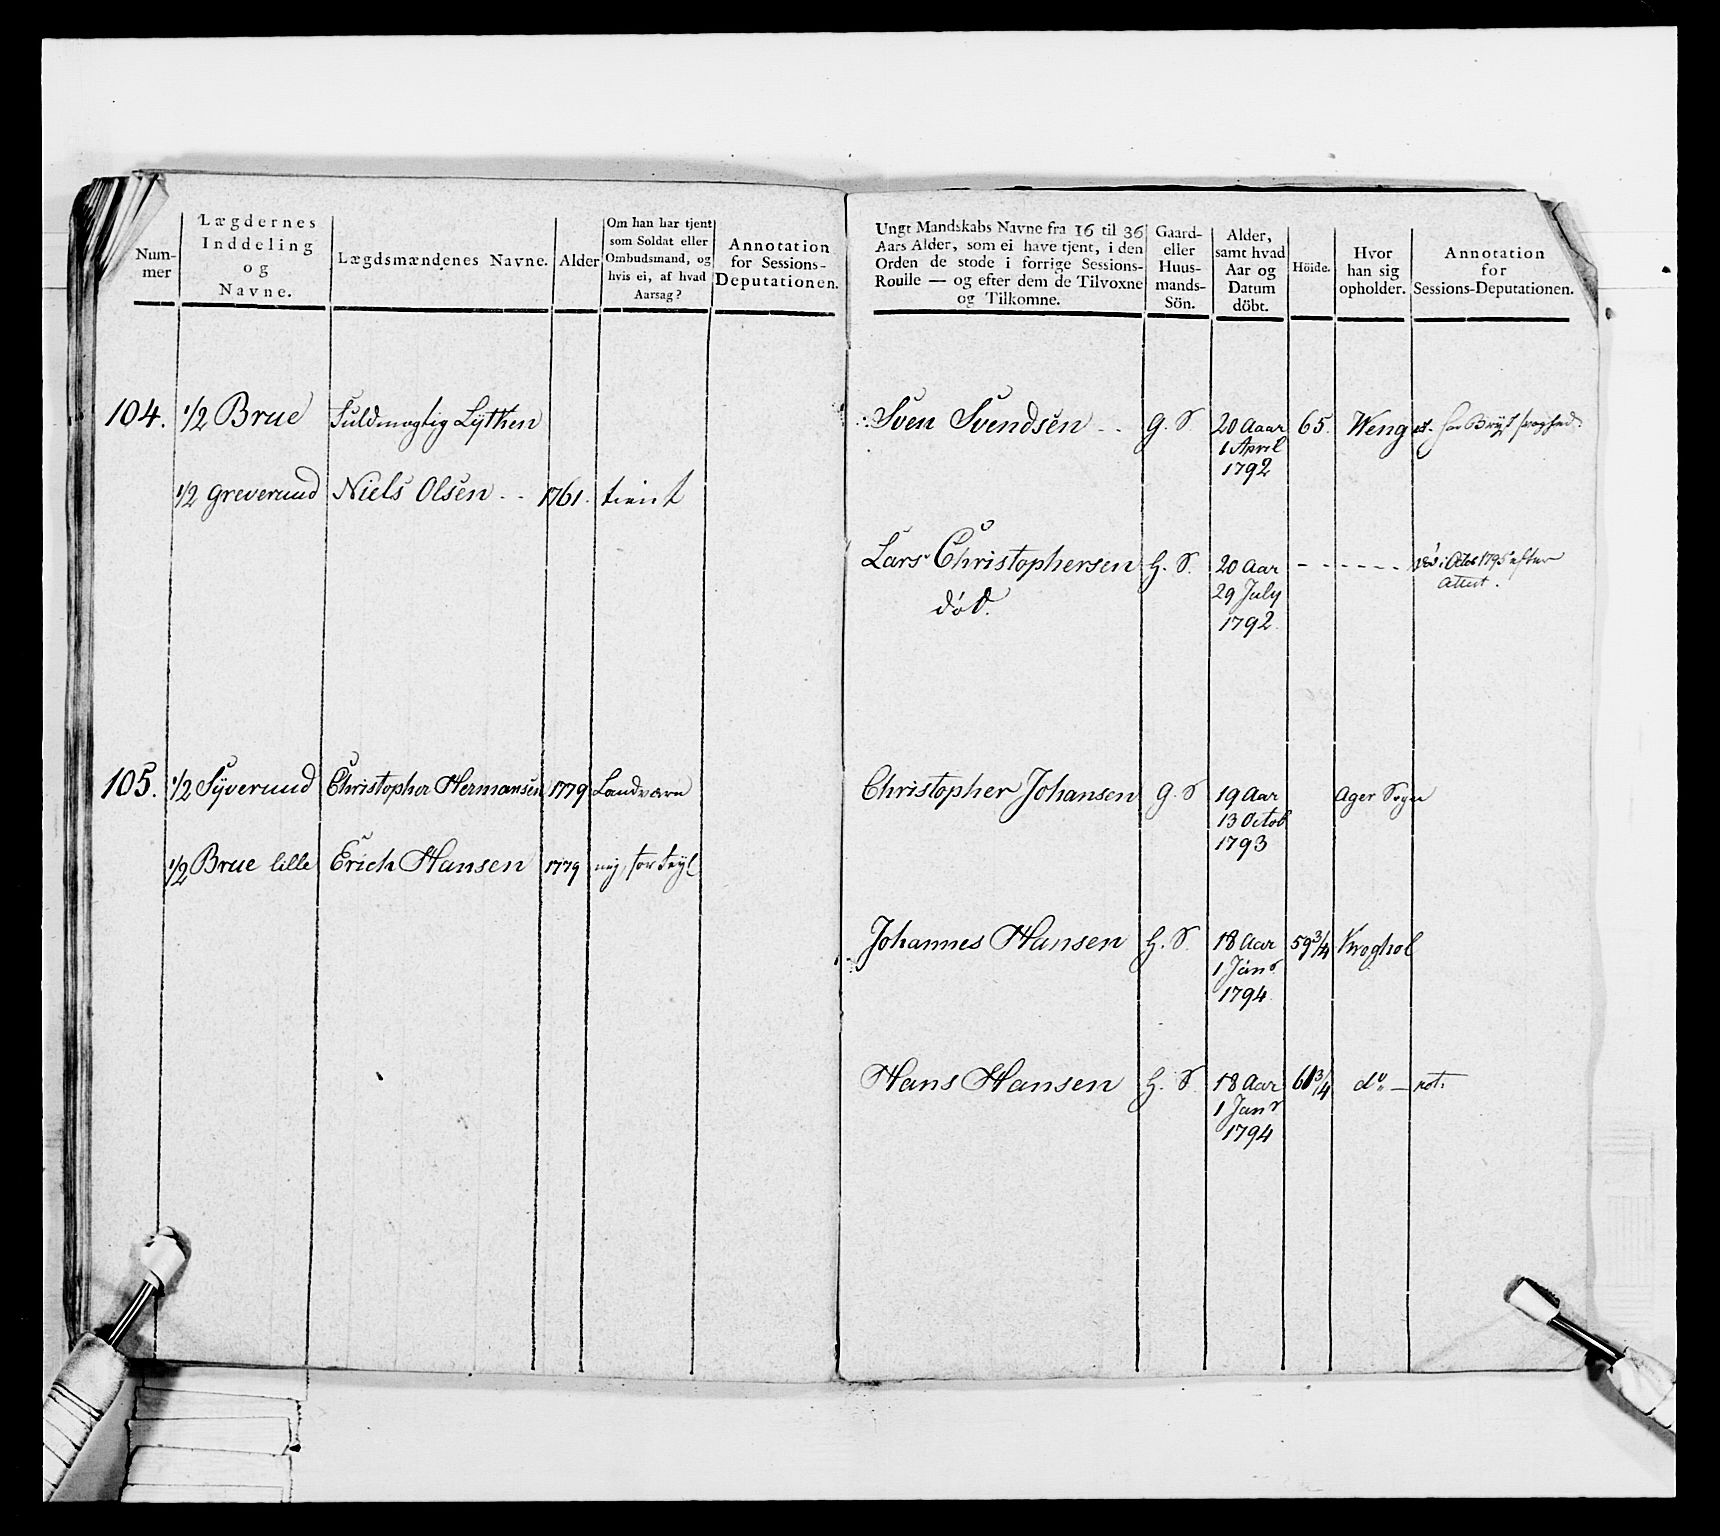 Num-
mer
Lægdernes
Inddeling
og
Navne.
Lægdsmændenes Navne.
Alder
Om han har tjent
som Soldat eller
Ombudsmand, og
hvis ei, af hvad
Aarsag?
Annotation
for Sessions-
Deputationen.
104. 1/2 Brue Fuldmægtig Lÿtken
1/2 Greverud Niels Olsen - - 1761. tient
105. 1/2 Sÿverud Christopher Hermansen 1779 Landværn
1/2 Brue lille Erich Hansen 1779 nei, for
Ungt Mandskabs Navne fra 16 til 36
Aars Alder, som ei have tjent, i den
Orden de stode i forrige Sessions-
Roulle — og efter dem de Tilvoxne
og Tilkomne.
Gaard-
eller
Huus-
mands-
Sön.
Alder,
samt hvad
Aar og
Datum
döbt.
Höide.
Hvor
han sig
opholder.
Annotation
for
Sessions-Deputationen.
Sven Svendsen - - G. S 20 Aaar 65. Weng har Bryst
1 April
1792
Lars Christophersen H. S. 20 Aar - - - - - - død i Octob 1795 efter
død. 29 July Attest.
1792.
Christopher Johansen G. S 19 Aar Ager Sogn
13 Octob
1793
Johannes Hansen H. S. 18 Aar 59 3/4 Kroghol
1 Janr
1794
Hans Hansen H. S. 18 Aar 61 3/4 do — not:
1 Janr
1794